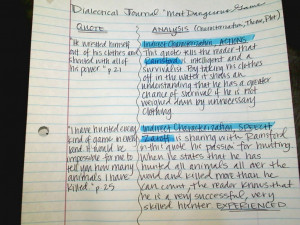 Dialectical Journal "Most Dangerous Game
QUOTE
ANALYSIS (Characterization, Theme, Plot)
"He wrestled himself
out of his clothes and
shouted with all of
his power." p.21
Indirect Characterization, ACTIONS
This quote tells the reader that
Rainsford is intelligent and a
survivalist. By taking his clothes
off in the water it shows an
understanding that he has a greater
chance of survival if he is not
weighed down by unnecessary
clothing.
"I have hunted every
kind of game in every
land. It would be
impossible for me to
tell you how many
animals I have
killed." p.25
Indirect Characterization, SPEECH
Zaroff is sharing with Rainsford
in this quote his passion for hunting.
When he states that he has
hunted all animals all over the
world and killed more than he
can count, the reader knows that
he is a very successful, very
skilled hunter EXPERIENCED